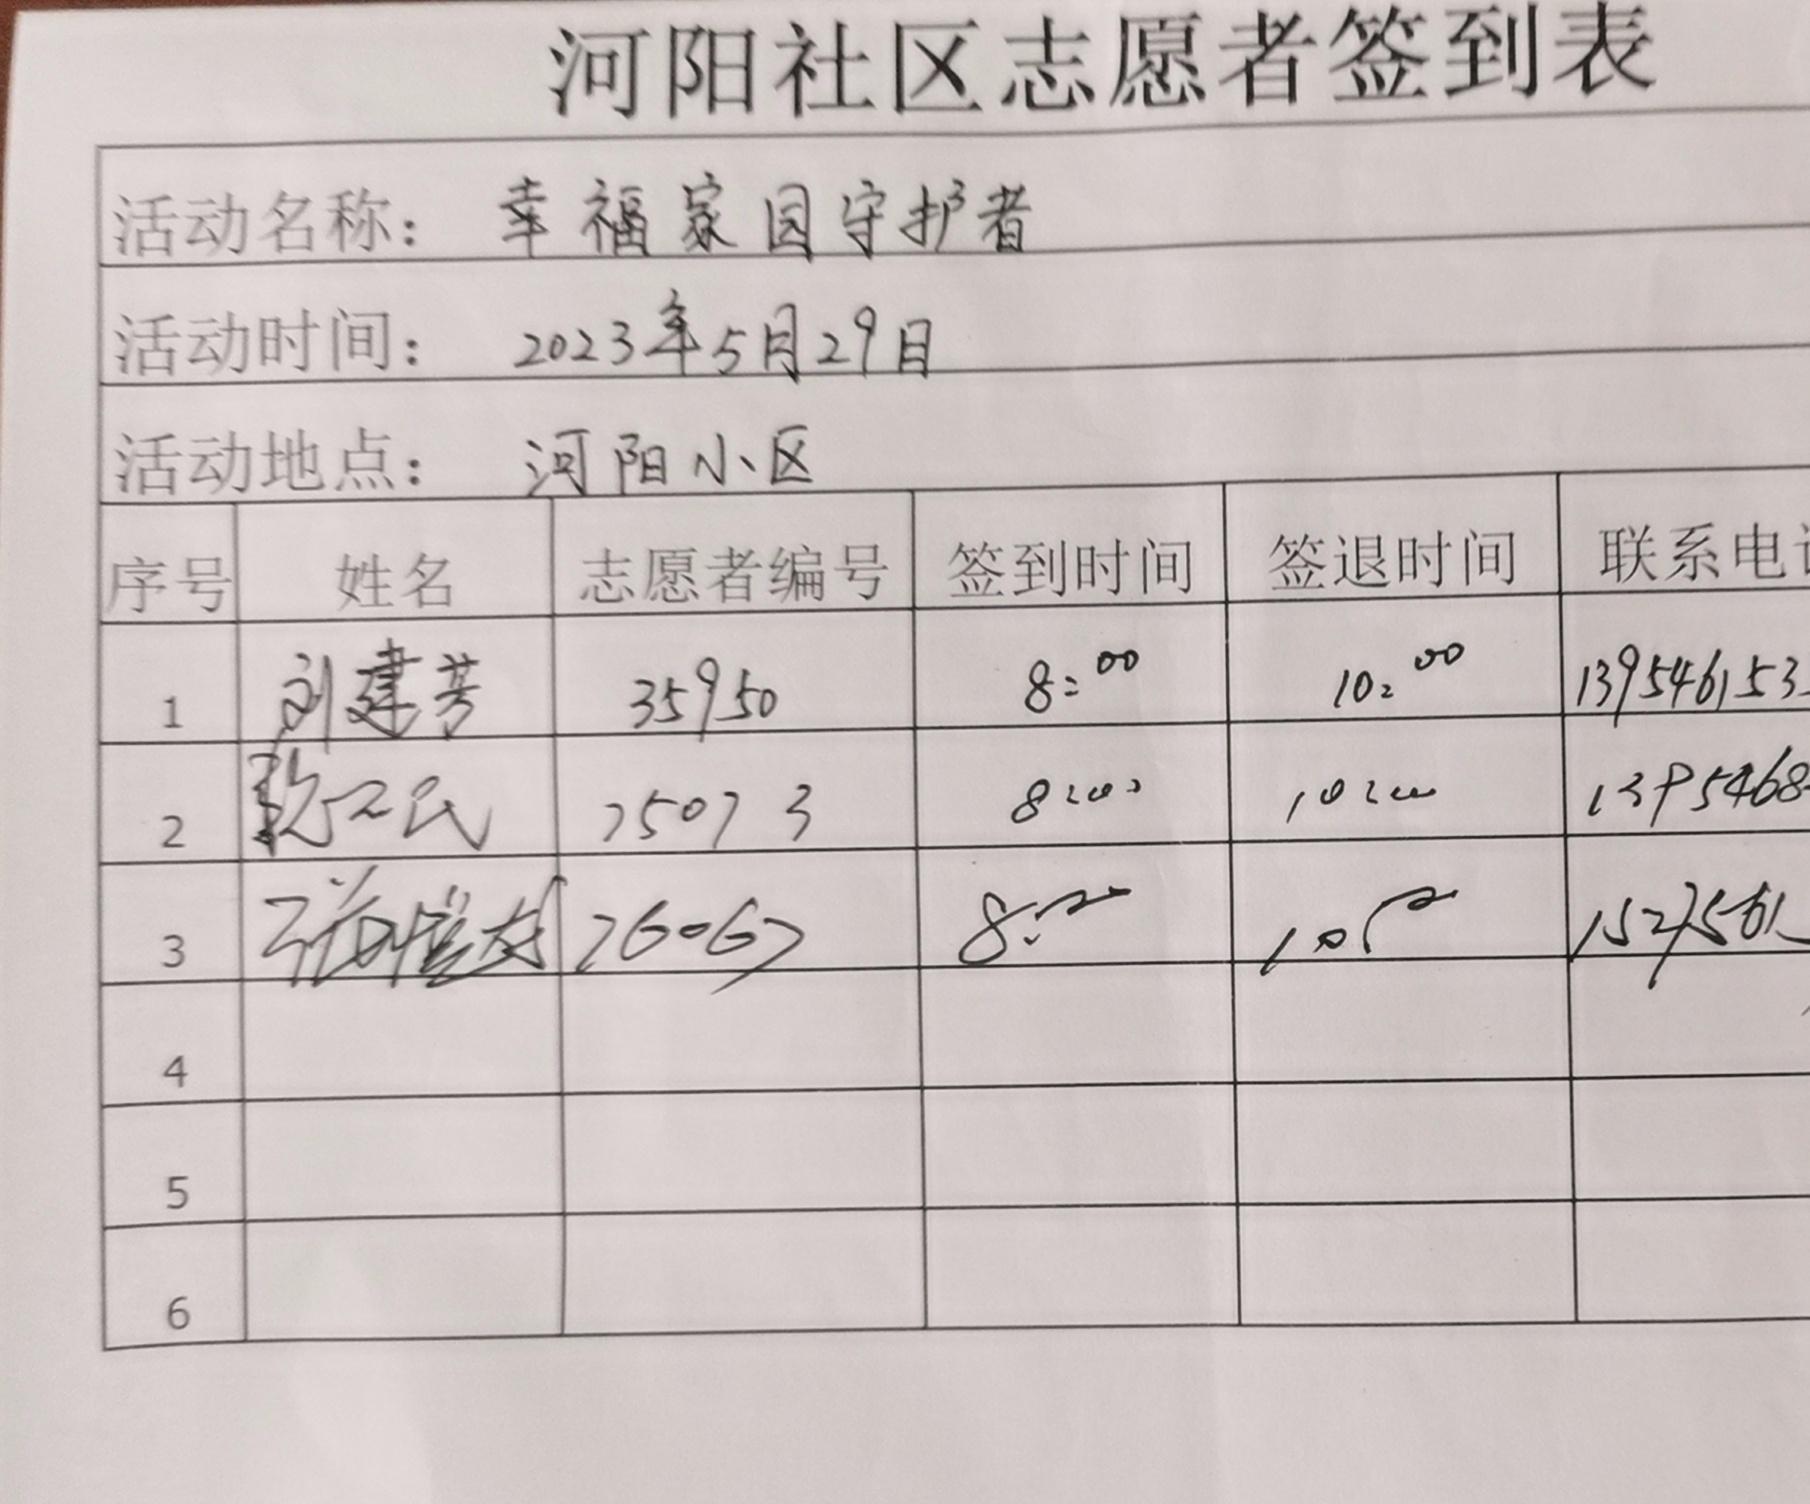 河阳社区志愿者签到表
活动名称： 幸福家园守护者
活动时间： 2023年5月29日
活动地点： 河阳小区
序号 姓名 志愿者编号 签到时间 签退时间 联系电
1 刘建芳 35950 8:00 10:00 139546153
2 75073 8:00 10:00 1395468
3 76067 8:00 10:00 1527561
4
5
6